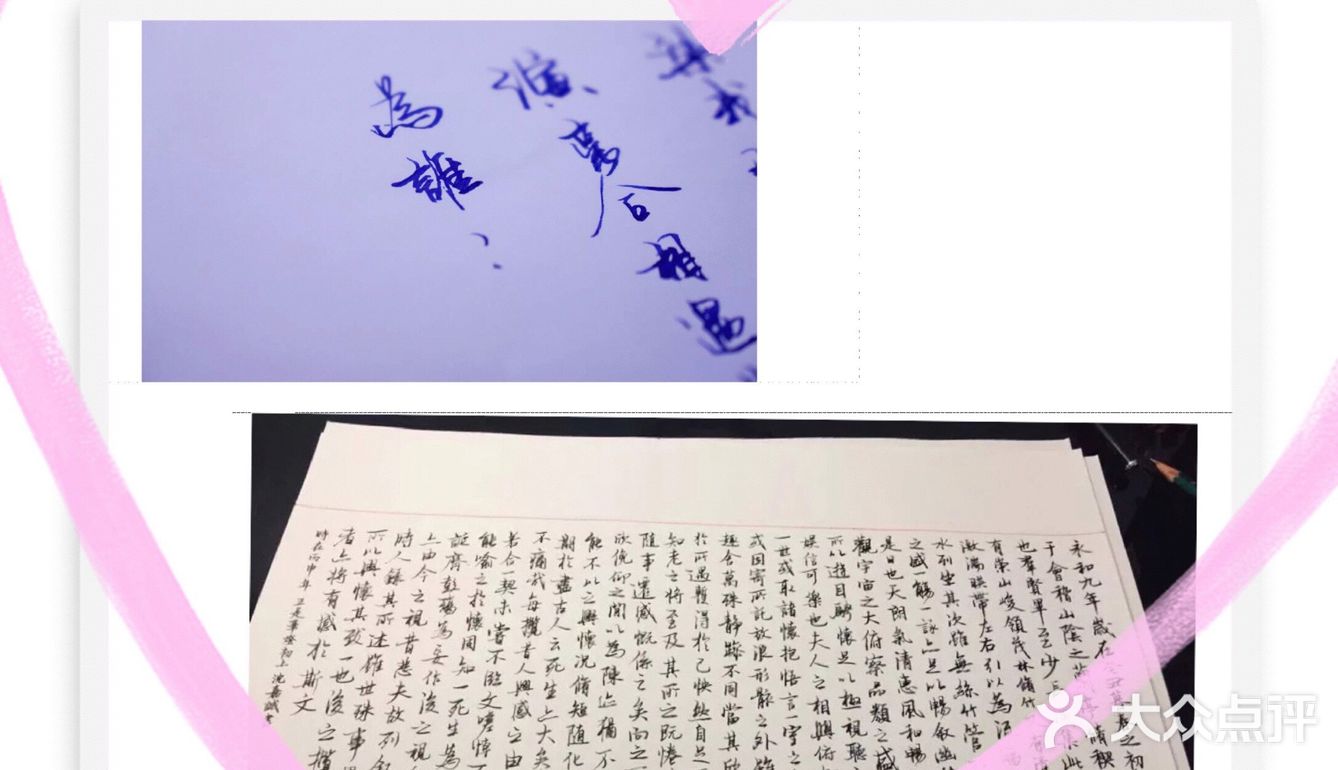 相遇
為誰
永和九年歲在之初
于會稽山陰之
也羣賢畢至少集此
有崇山峻領茂林脩竹
激湍暎帶左右引以為流
水列坐其次雖無絲竹管
之盛一觴一詠足以暢敘幽
是日也天朗氣清惠風和暢
觀宇宙之大俯察品類之盛
所以遊目騁懷足以極視聽
娛信可樂也夫人之相與俯
一世或取諸懷抱悟言一室之
或因寄所託放浪形骸之外雖
趣舍萬殊靜躁不同當其欣
於所遇暫得於己快然自足
知老之將至及其所之既惓
隨事遷感慨係之矣向之
欣俛仰之閒以為陳迹猶不
能不以之興懷況脩短隨化
期於盡古人云死生亦大矣
不痛哉每攬昔人興感之由
若合一契未嘗不臨文嗟悼
能喻之於懷固知一死生為
誕齊彭殤為妄作後之視
亦由今之視昔悲夫故列敘
時人錄其所述雖世殊事
所以興懷其致一也後之攬
者亦將有感於斯文
時在丙申年
大众点评